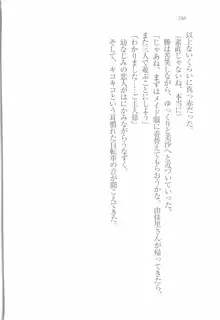 248
以上ないくらいに真っ赤だった。
「素直じゃないね、本当に」
勝は苦笑しながら、ゆっくりと美沙へと近づいていった。
「じゃあね、まずはメイド服に着替えてもらおうかな。由佳里さんが帰ってきたら、
また三人で遊ぶことにしよう」
「わかりました……ご主人様」
幼なじみの恋人がはにかみながらうなずく。
そして、キコキコという耳慣れた自転車の音が聞こえてきた。